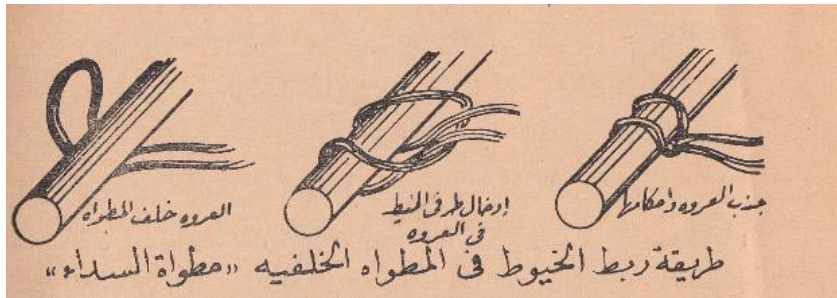 جذب العروه وإحكامها
إدخال طرفى الخيط
فى العروه
العروه خلف المطواه
طريقة ربط الخيوط فى المطواه الخلفيه «مطواة السداء»